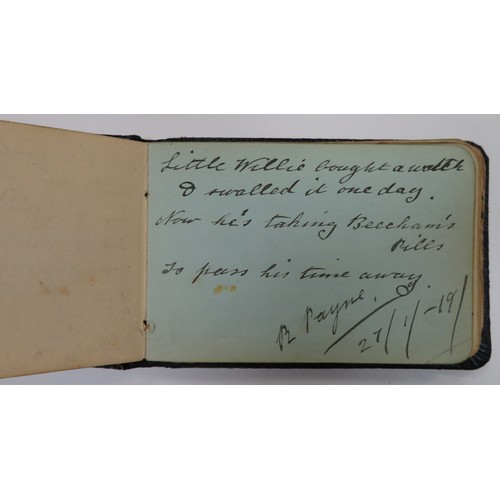 Little Willie bought a watch
& swalled it one day.
Now he's taking Beecham's
Pills
To pass his time away.
R Payne.
27/1/-19/